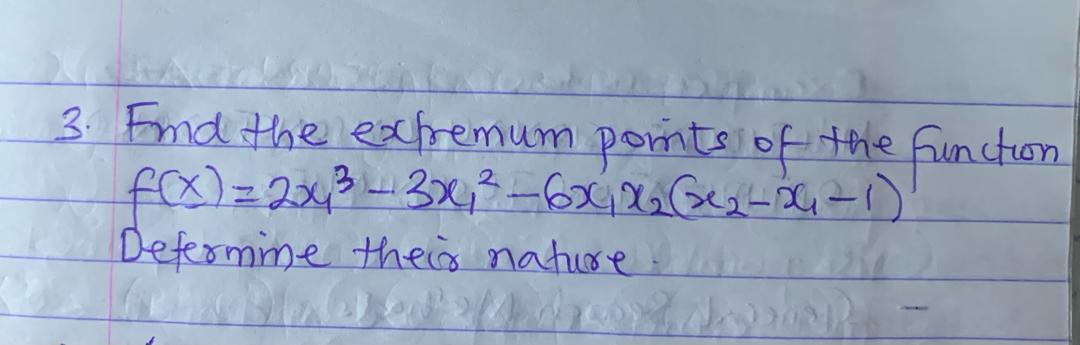 3. Find the extremum points of the function
f(x) = 2x₁³ - 3x₁² - 6x₁x₂(x₂ - x₁ - 1)
Determine their nature.